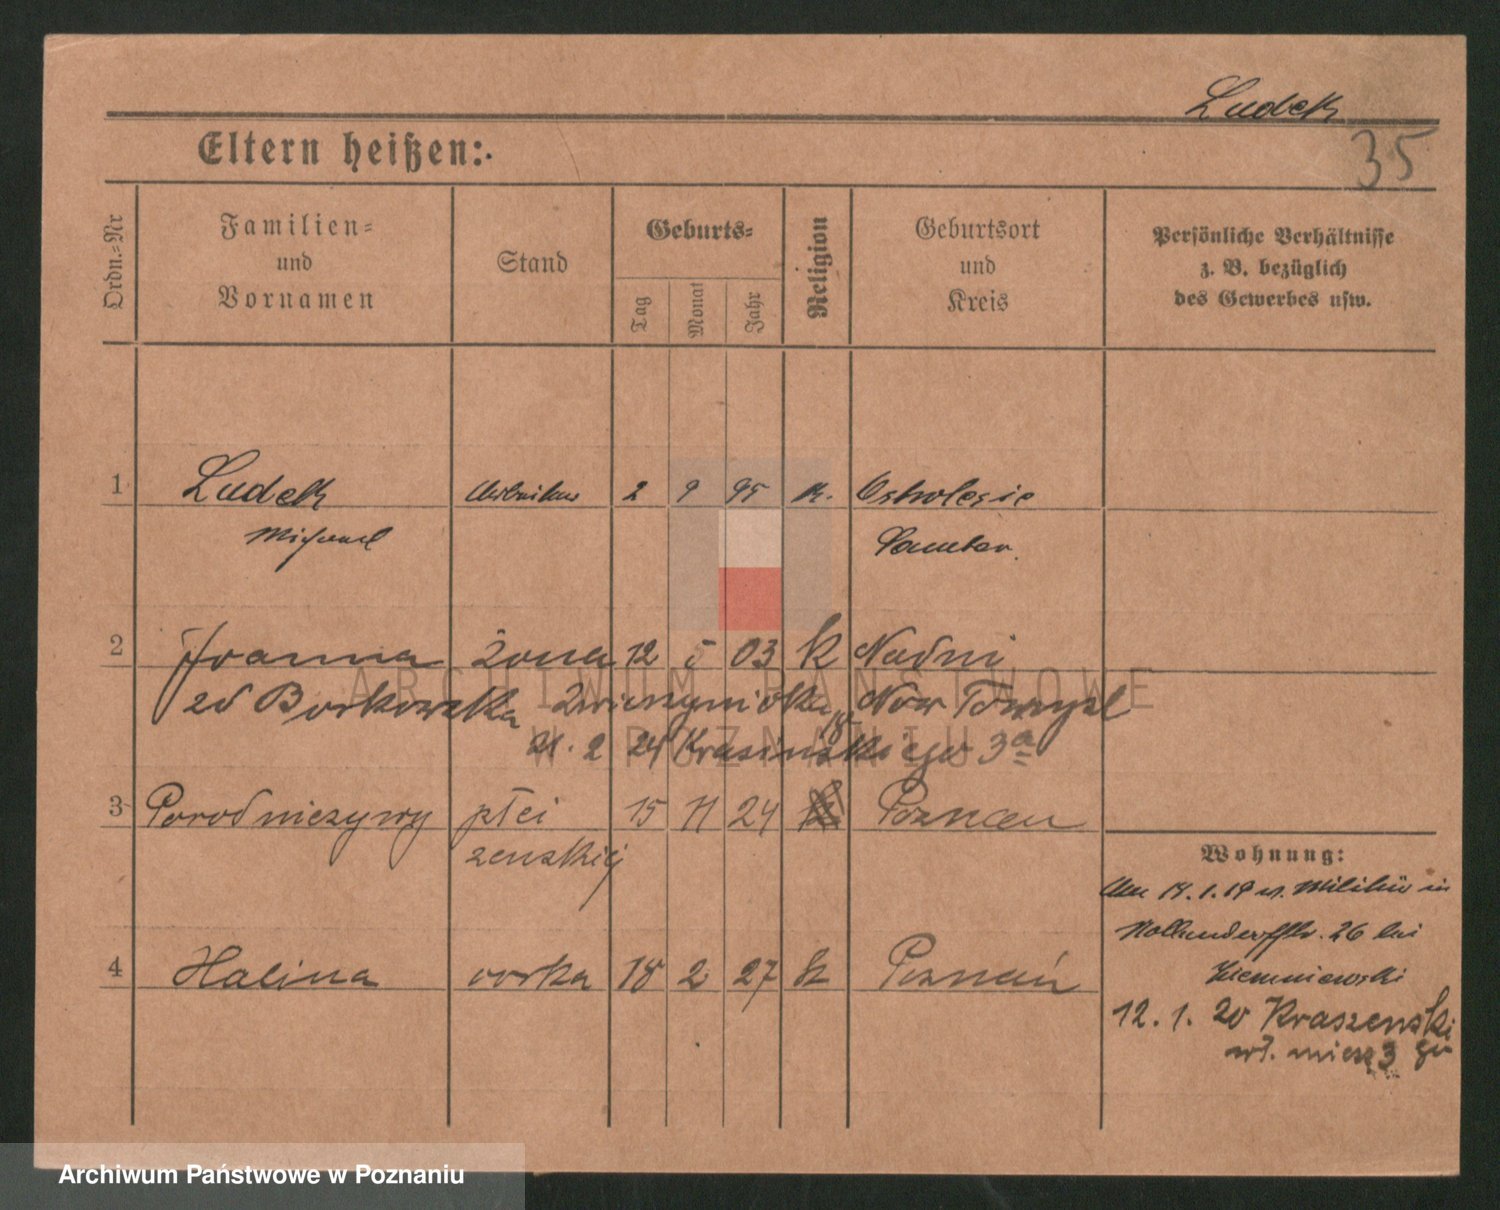 Ludek
35
Eltern heißen:
Ordn.=Nr
Familien=
und
Vornamen
Stand
Geburts=
Tag
Monat
Jahr
Religion
Geburtsort
und
Kreis
Persönliche Verhältnisse
z. B. bezüglich
des Gewerbes usw.
1 Ludek 2 9 95 k.
Michael
2 żona 12 5 03 k
zd Borkowska Now Tomysl
21. 2 24 Krasinskiego 3a
18
3 Porod nieżywy płci 15 11 24 Poznan
zenskiej
4 Halina corka 18 2 27 k Poznań
Wohnung:
14. 1. 19 v. Militär in
26 bei
Ziemniewski
12. 1. 20 Kraszewski
wł. miesz 3
ARCHIWUM PAŃSTWOWE
W POZNANIU
Archiwum Państwowe w Poznaniu